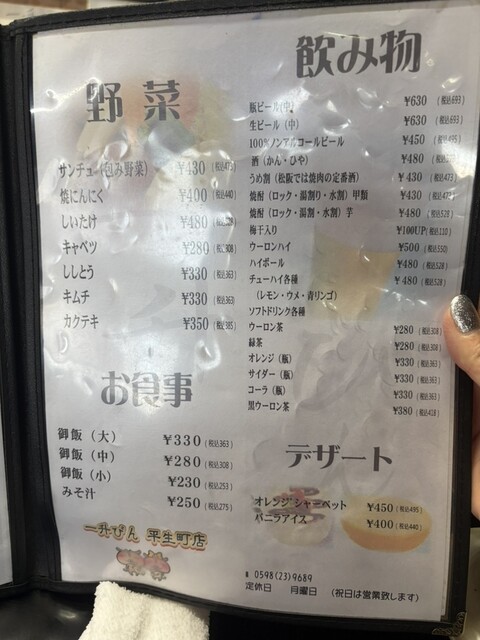 野菜
サンチュ（包み野菜） ¥430（税込473）
焼にんにく ¥400（税込440）
しいたけ ¥480
キャベツ ¥280（税込308）
ししとう ¥330（税込363）
キムチ ¥330（税込363）
カクテキ ¥350（税込385）
お食事
御飯（大） ¥330（税込363）
御飯（中） ¥280（税込308）
御飯（小） ¥230（税込253）
みそ汁 ¥250（税込275）
一升びん 平生町店
飲み物
瓶ビール（中） ¥630（税込693）
生ビール（中） ¥630（税込693）
100％ノンアルコールビール ¥450（税込495）
酒（かん・ひや） ¥480
うめ割（松阪では焼肉の定番酒） ¥430（税込473）
焼酎（ロック・湯割り・水割）甲類 ¥430（税込473）
焼酎（ロック・湯割・水割）芋 ¥480（税込528）
梅干入り ¥100UP（税込110）
ウーロンハイ ¥500（税込550）
ハイボール ¥480（税込528）
チューハイ各種 ¥480（税込528）
（レモン・ウメ・青リンゴ）
ソフトドリンク各種
ウーロン茶 ¥280（税込308）
緑茶 ¥280（税込308）
オレンジ（瓶） ¥330（税込363）
サイダー（瓶） ¥330（税込363）
コーラ（瓶） ¥330（税込363）
黒ウーロン茶 ¥380（税込418）
デザート
オレンジシャーベット ¥450（税込495）
バニラアイス ¥400（税込440）
☎ 0598（23）9689
定休日 月曜日 （祝日は営業致します）